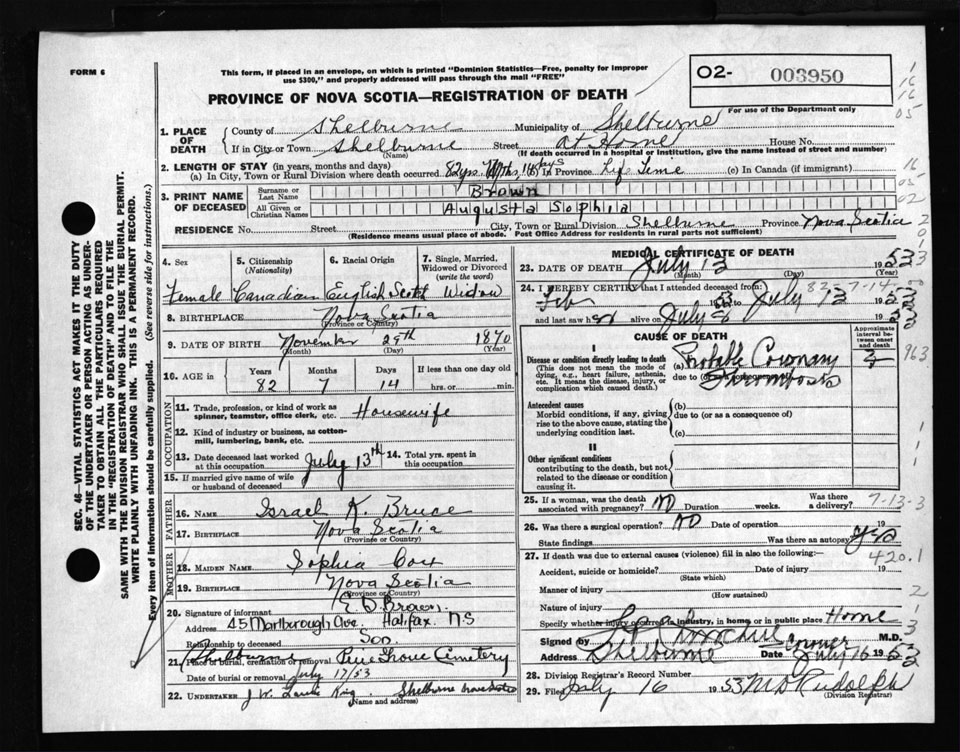 FORM 6
This form, if placed in an envelope, on which is printed "Dominion Statistics—Free, penalty for improper
use $300," and properly addressed will pass through the mail "FREE"
O2- 003950
For use of the Department only
PROVINCE OF NOVA SCOTIA—REGISTRATION OF DEATH
1. PLACE OF DEATH
County of Shelburne Municipality of Shelburne
If in City or Town Shelburne (Name) Street At Home House No.
(If death occurred in a hospital or institution, give the name instead of street and number)
2. LENGTH OF STAY (in years, months and days)
(a) In City, Town or Rural Division where death occurred 82 yrs. 7 Mths, 14 days (b) In Province Life Time (c) In Canada (if immigrant)
3. PRINT NAME OF DECEASED
Surname or Last Name Brown
All Given or Christian Names Augusta Sophia
RESIDENCE No. Street City, Town or Rural Division Shelburne Province Nova Scotia
(Residence means usual place of abode. Post Office Address for residents in rural parts not sufficient)
4. Sex
Female
5. Citizenship (Nationality)
Canadian
6. Racial Origin
English Scotch
7. Single, Married, Widowed or Divorced (write the word)
Widow
8. BIRTHPLACE Nova Scotia
(Province or Country)
9. DATE OF BIRTH November 29th 1870
(Month) (Day) (Year)
10. AGE in Years Months Days If less than one day old
82 7 14 hrs. or min.
OCCUPATION
11. Trade, profession, or kind of work as spinner, teamster, office clerk, etc. Housewife
12. Kind of industry or business, as cotton-mill, lumbering, bank, etc.
13. Date deceased last worked at this occupation July 13th
14. Total yrs. spent in this occupation
15. If married give name of wife or husband of deceased
FATHER
16. Name Israel K. Bruce
17. BIRTHPLACE Nova Scotia
(Province or Country)
MOTHER
18. MAIDEN NAME Sophia Cox
19. BIRTHPLACE Nova Scotia
(Province or Country)
20. Signature of informant E. D. Brown
Address 45 Marlborough Ave. Halifax N.S
Relationship to deceased Son
21. Place of burial, cremation or removal Shelburne Pine Grove Cemetery
Date of burial or removal July 17/53
22. UNDERTAKER J. W. King. Shelburne Nova Scotia
(Name and address)
MEDICAL CERTIFICATE OF DEATH
23. DATE OF DEATH July 13 1953
(Month) (Day) (Year)
24. I HEREBY CERTIFY that I attended deceased from:
82-7-14
Feb July 13 1953
and last saw her alive on July 8 1953
CAUSE OF DEATH
Approximate interval between onset and death
I
Disease or condition directly leading to death
(This does not mean the mode of dying, e.g., heart failure, asthenia, etc. It means the disease, injury, or complication which caused death.)
(a) Probable Coronary
due to Thrombosis
Antecedent causes
Morbid conditions, if any, giving rise to the above cause, stating the underlying condition last.
(b)
due to (or as a consequence of)
(c)
II
Other significant conditions
contributing to the death, but not related to the disease or condition causing it.
25. If a woman, was the death associated with pregnancy? NO Duration weeks. Was there a delivery?
7-13-3
26. Was there a surgical operation? NO Date of operation 19
State findings Was there an autopsy
420.1
27. If death was due to external causes (violence) fill in also the following:—
Accident, suicide or homicide? (State which) Date of injury 19
Manner of injury
(How sustained)
Nature of injury
Specify whether injury occurred in industry, in home or in public place Home
Signed by Coroner M.D.
Address Shelburne Date July 16 1953
28. Division Registrar's Record Number
29. Filed July 16 1953 M D Rudolph
(Division Registrar)
SEC. 46—VITAL STATISTICS ACT MAKES IT THE DUTY
OF THE UNDERTAKER OR PERSON ACTING AS UNDER-
TAKER TO OBTAIN ALL THE PARTICULARS REQUIRED
IN THE "REGISTRATION OF DEATH" AND TO FILE THE
SAME WITH THE DIVISION REGISTRAR WHO SHALL ISSUE THE BURIAL PERMIT.
WRITE PLAINLY WITH UNFADING INK. THIS IS A PERMANENT RECORD.
Every item of information should be carefully supplied. (See reverse side for instructions.)